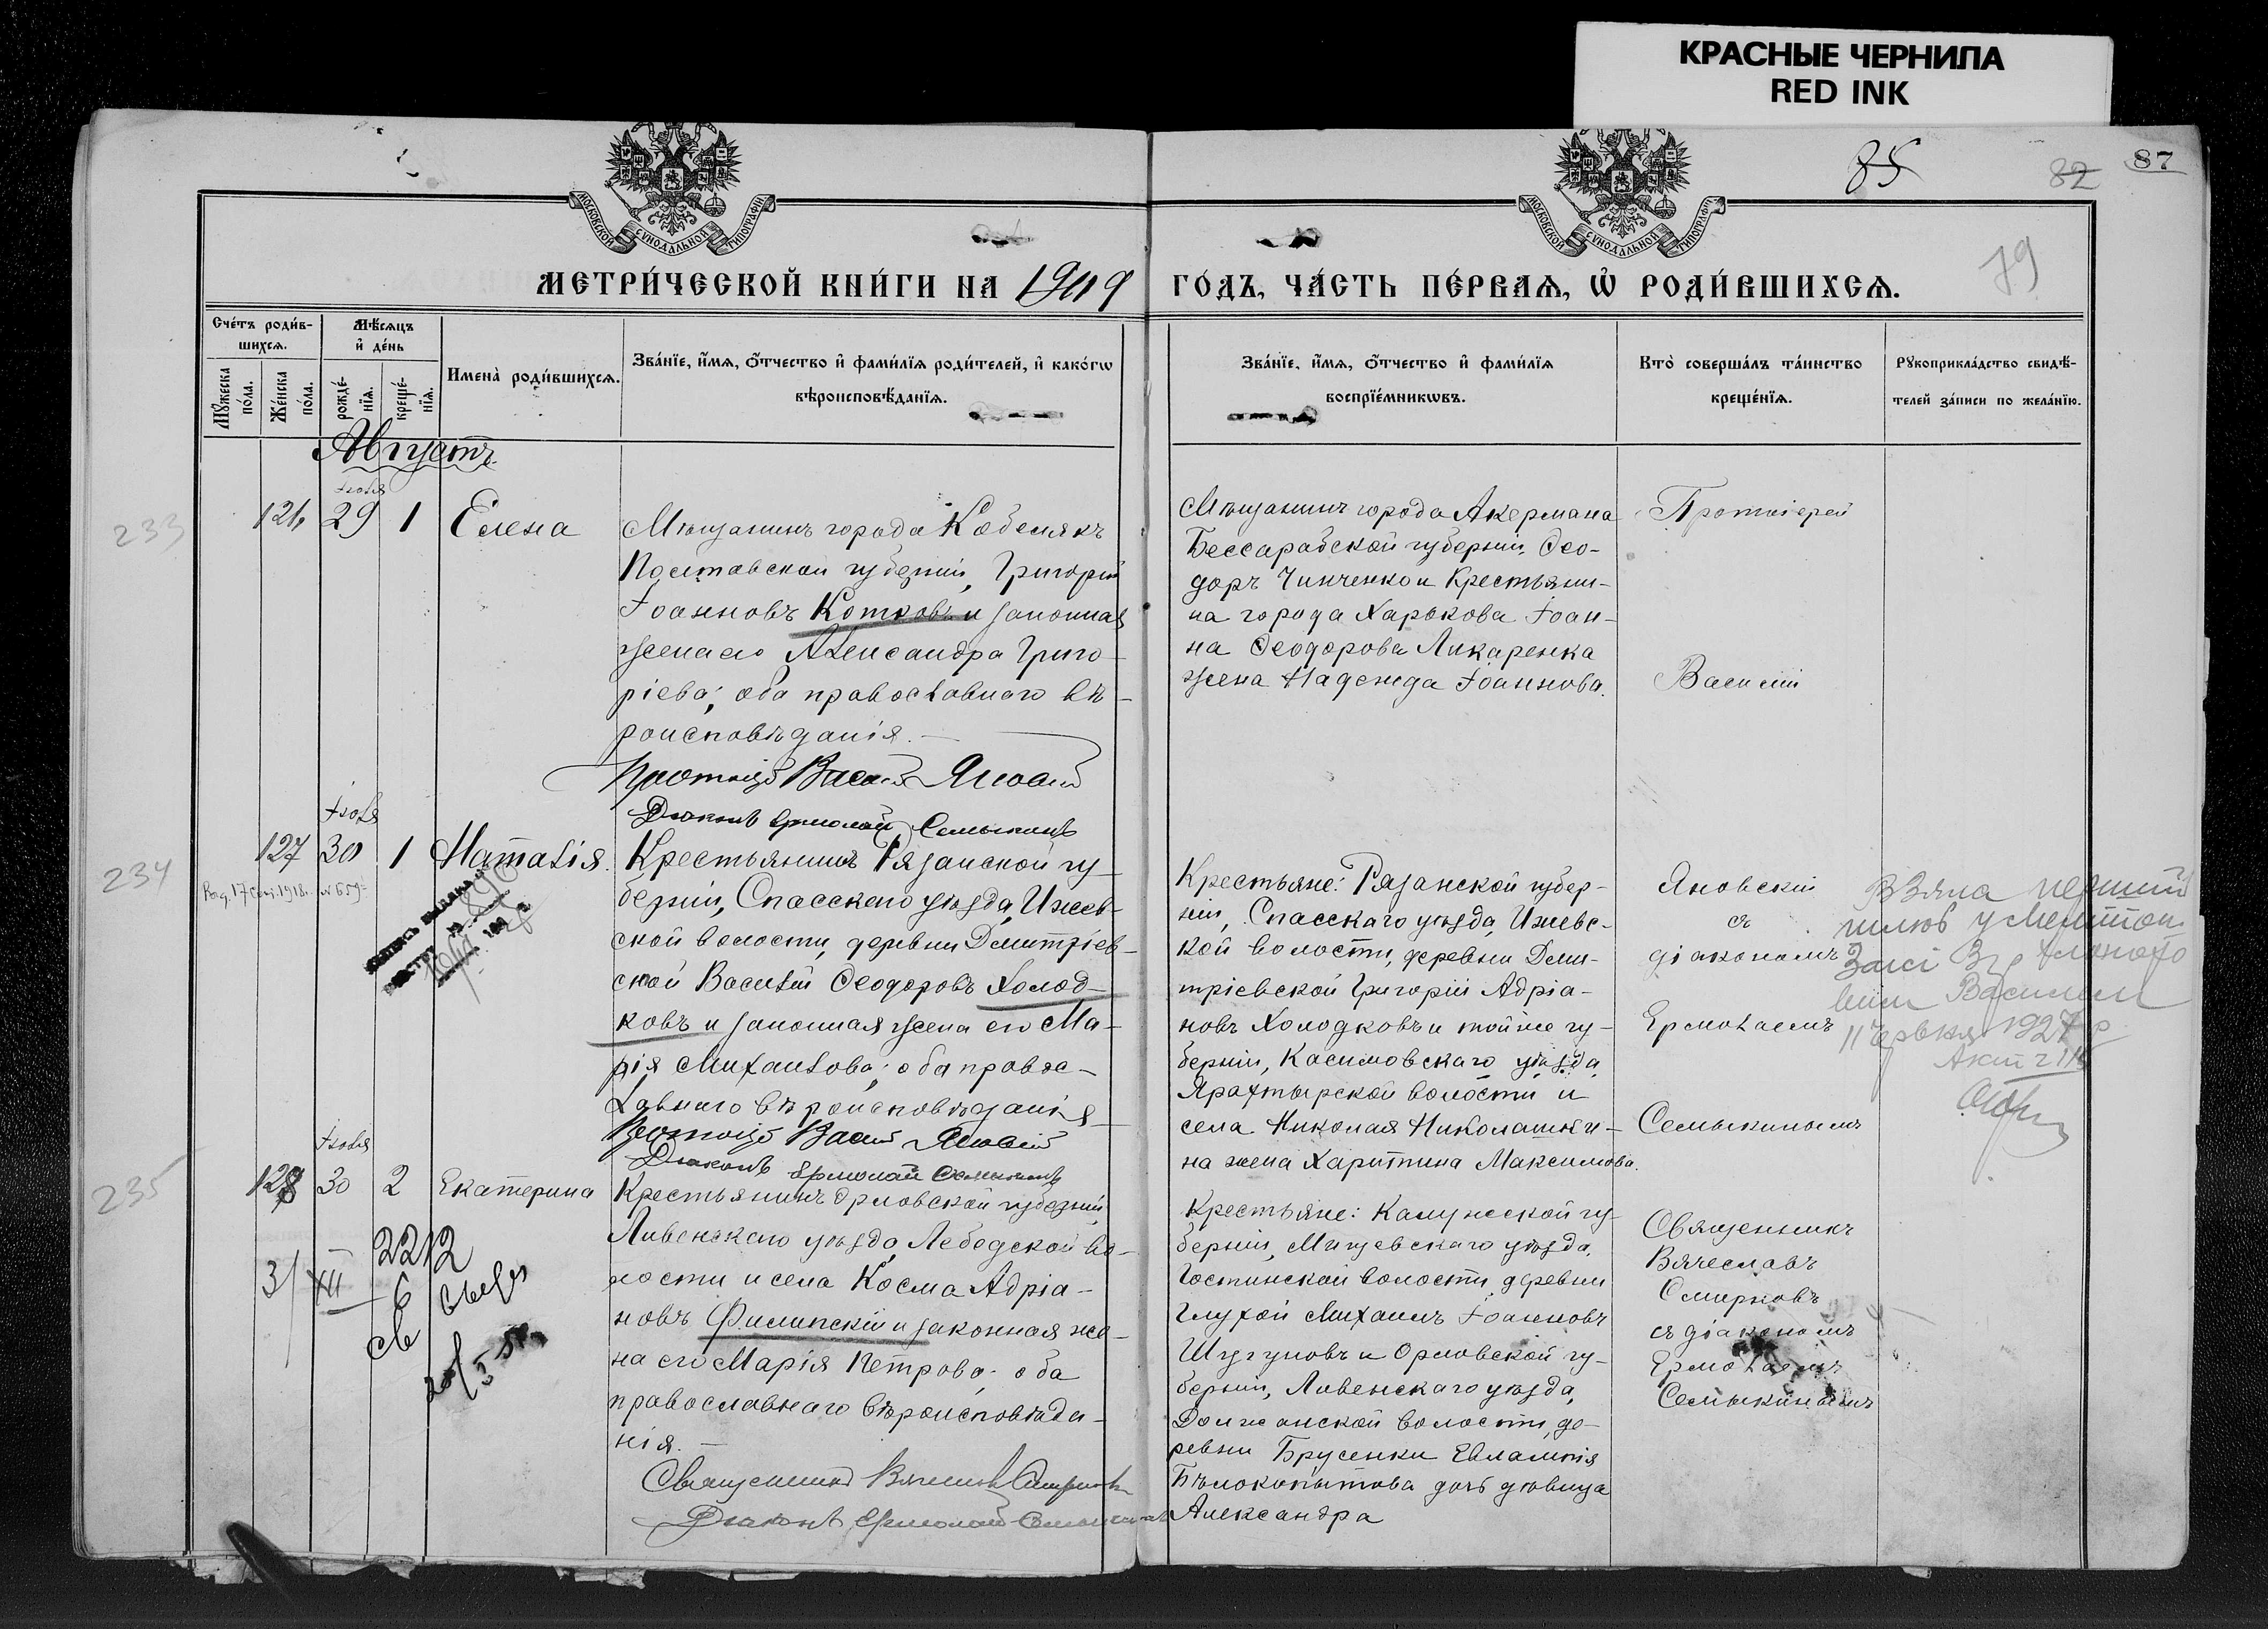 КРАСНЫЕ ЧЕРНИЛА
RED INK
85
82
87
79
МОСКОВСКОЙ СѴНОДАЛЬНОЙ ТИПОГРАФІИ
МОСКОВСКОЙ СѴНОДАЛЬНОЙ ТИПОГРАФІИ
МЕТРИ́ЧЕСКОЙ КНИ́ГИ НА 1909
ГО́ДЪ, ЧА́СТЬ ПЕ́РВАѦ, Ѽ РОДИ́ВШИХСѦ.
Сче́тъ роди́в-
шихсѧ.
Мѣ́сѧцъ
и҆ де́нь
Мꙋ́жеска
по́ла.
Же́нска
по́ла.
рожде́-
нїѧ.
креще́-
нїѧ.
Имена̀ роди́вшихсѧ.
Зва́нїе, и҆́мѧ, ѻ҆́тчество и҆ фами́лїѧ роди́телей, и҆ како́гѡ
вѣроисповѣ́данїѧ.
Зва́нїе, и҆́мѧ, ѻ҆́тчество и҆ фами́лїѧ
воспрїе́мникѡвъ.
Кто̀ соверша́лъ та́инство
креще́нїѧ.
Рꙋкоприкла́дство свидѣ́-
телей за́писи по жела́нїю.
Августъ
233
Іюля
126
29
1
Елена
Мѣщанинъ города Кобелякъ
Полтавской губерніи, Григорій
Іоанновъ Котковъ и законная
жена его Александра Григо-
ріева; оба православнаго вѣ-
роисповѣданія.
Протоіерей Василій Яновскій
Діаконъ Ермолай Семыкинъ
Мѣщанинъ города Акермана
Бессарабской губерніи Ѳео-
доръ Чинченко и Крестьяни-
на города Харькова Іоан-
на Ѳеодорова Ликаренка
жена Надежда Іоаннова.
Протоіерей
Василій
234
Іюля
127
30
1
Наталія.
Крестьянинъ Рязанской гу-
берніи, Спасскаго уѣзда, Ижев-
ской волости, деревни Дмитріев-
ской Василій Ѳеодоровъ Холод-
ковъ и законная жена его Ма-
рія Михаилова; оба правос-
лавнаго вѣроисповѣданія
Протоіерей Василій Яновскій
Діаконъ Ермолай Семыкинъ
Крестьяне: Рязанской губер-
ніи, Спасскаго уѣзда, Ижевс-
кой волости, деревни Дми-
тріевской Григорій Адріа-
новъ Холодковъ и той же гу-
берніи, Касимовскаго уѣзда,
Ярахтырской волости и
села Николая Николашки-
на жена Харитина Максимова.
Яновскій
съ
діакономъ
Ермолаемъ
Семыкинымъ
Взяла перший
шлюб
Василем
11 червня 1927 р
235
Іюля
128
30
2
Екатерина
Крестьянинъ Орловской губерніи,
Ливенскаго уѣзда, Лебедской во-
лости и села Косма Адріа-
новъ Филипскій и законная же-
на его Марія Петрова; оба
православнаго вѣроисповѣда-
нія.
Священникъ Вячеславъ Смирновъ
Діаконъ Ермолай Семыкинъ
Крестьяне: Калужской гу-
берніи, Мищевскаго уѣзда,
Гостинской волости, деревни
Глухой Михаилъ Іоанновъ
Шугуновъ и Орловской гу-
берніи, Ливенскаго уѣзда,
Должанской волости, де-
ревни Брусенки Евлампія
Бѣлокопытова дочь дѣвица
Александра
Священникъ
Вячеславъ
Смирновъ
съ діакономъ
Ермолаемъ
Семыкинымъ
2212
31 XII